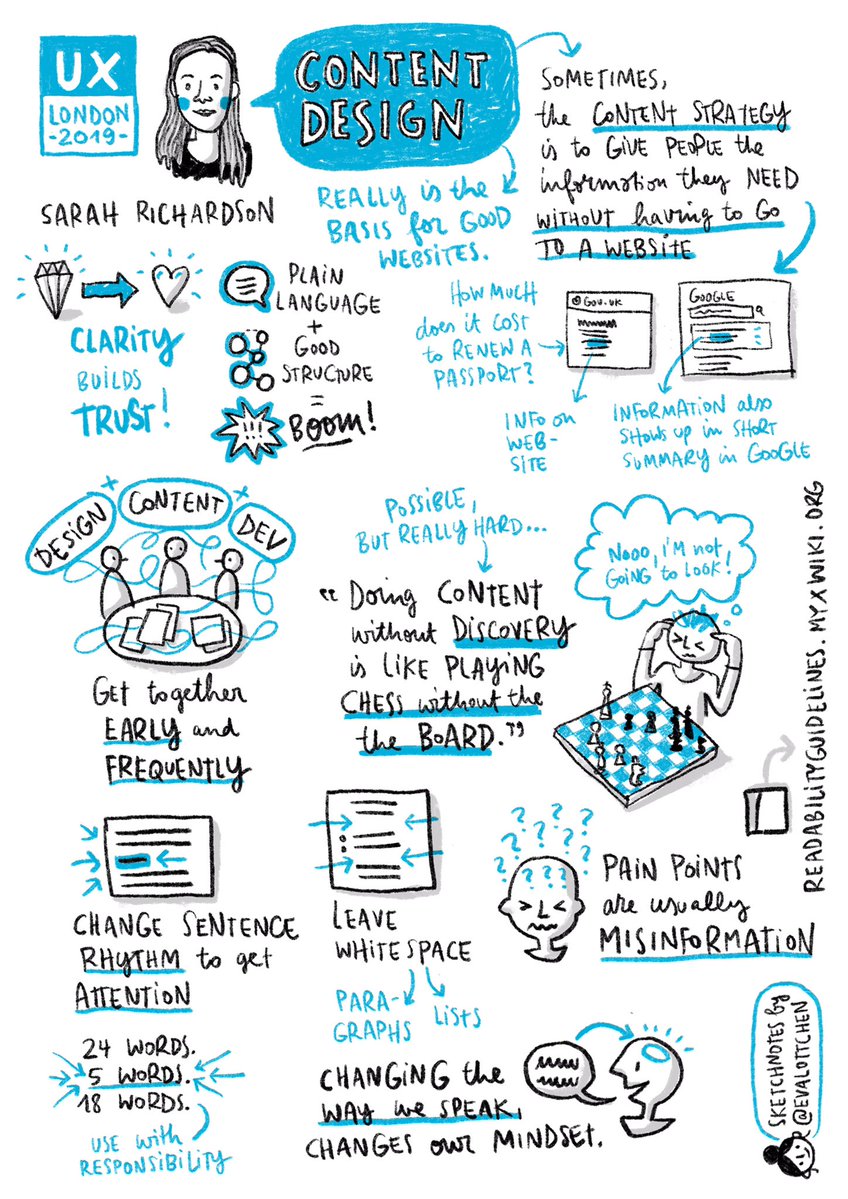 UX
LONDON
-2019-
SARAH RICHARDSON
CONTENT
DESIGN
REALLY is the
BASIS for GOOD
WEBSITES.
SOMETIMES,
the CONTENT STRATEGY
is to GIVE PEOPLE the
information they NEED
WITHOUT having to GO
TO A WEBSITE
CLARITY
BUILDS
TRUST!
PLAIN
LANGUAGE
+
GOOD
STRUCTURE
=
!!!
BOOM!
HOW MUCH
does it COST
to RENEW A
PASSPORT?
GOV.UK
GOOGLE
INFO ON
WEB-
SITE
INFORMATION also
SHOWS UP in SHORT
SUMMARY in GOOGLE
DESIGN + CONTENT + DEV
GET together
EARLY and
FREQUENTLY
POSSIBLE,
BUT REALLY HARD...
"Doing CONTENT
without DISCOVERY
is LIKE PLAYING
CHESS without the
the BOARD."
NOOO, I'M not
GOING to LOOK!
READABILITYGUIDELINES.MYXWIKI.ORG
CHANGE SENTENCE
RHYTHM to get
ATTENTION
24 WORDS.
5 WORDS.
18 WORDS.
USE with
RESPONSIBILITY
LEAVE
WHITESPACE
PARA-
GRAPHS
LISTS
? ? ? ? ? ? ? ? ? ?
PAIN POINTS
are usually
MISINFORMATION
CHANGING the
WAY we SPEAK,
CHANGES our MINDSET.
SKETCHNOTES by
@EVALOTTCHEN